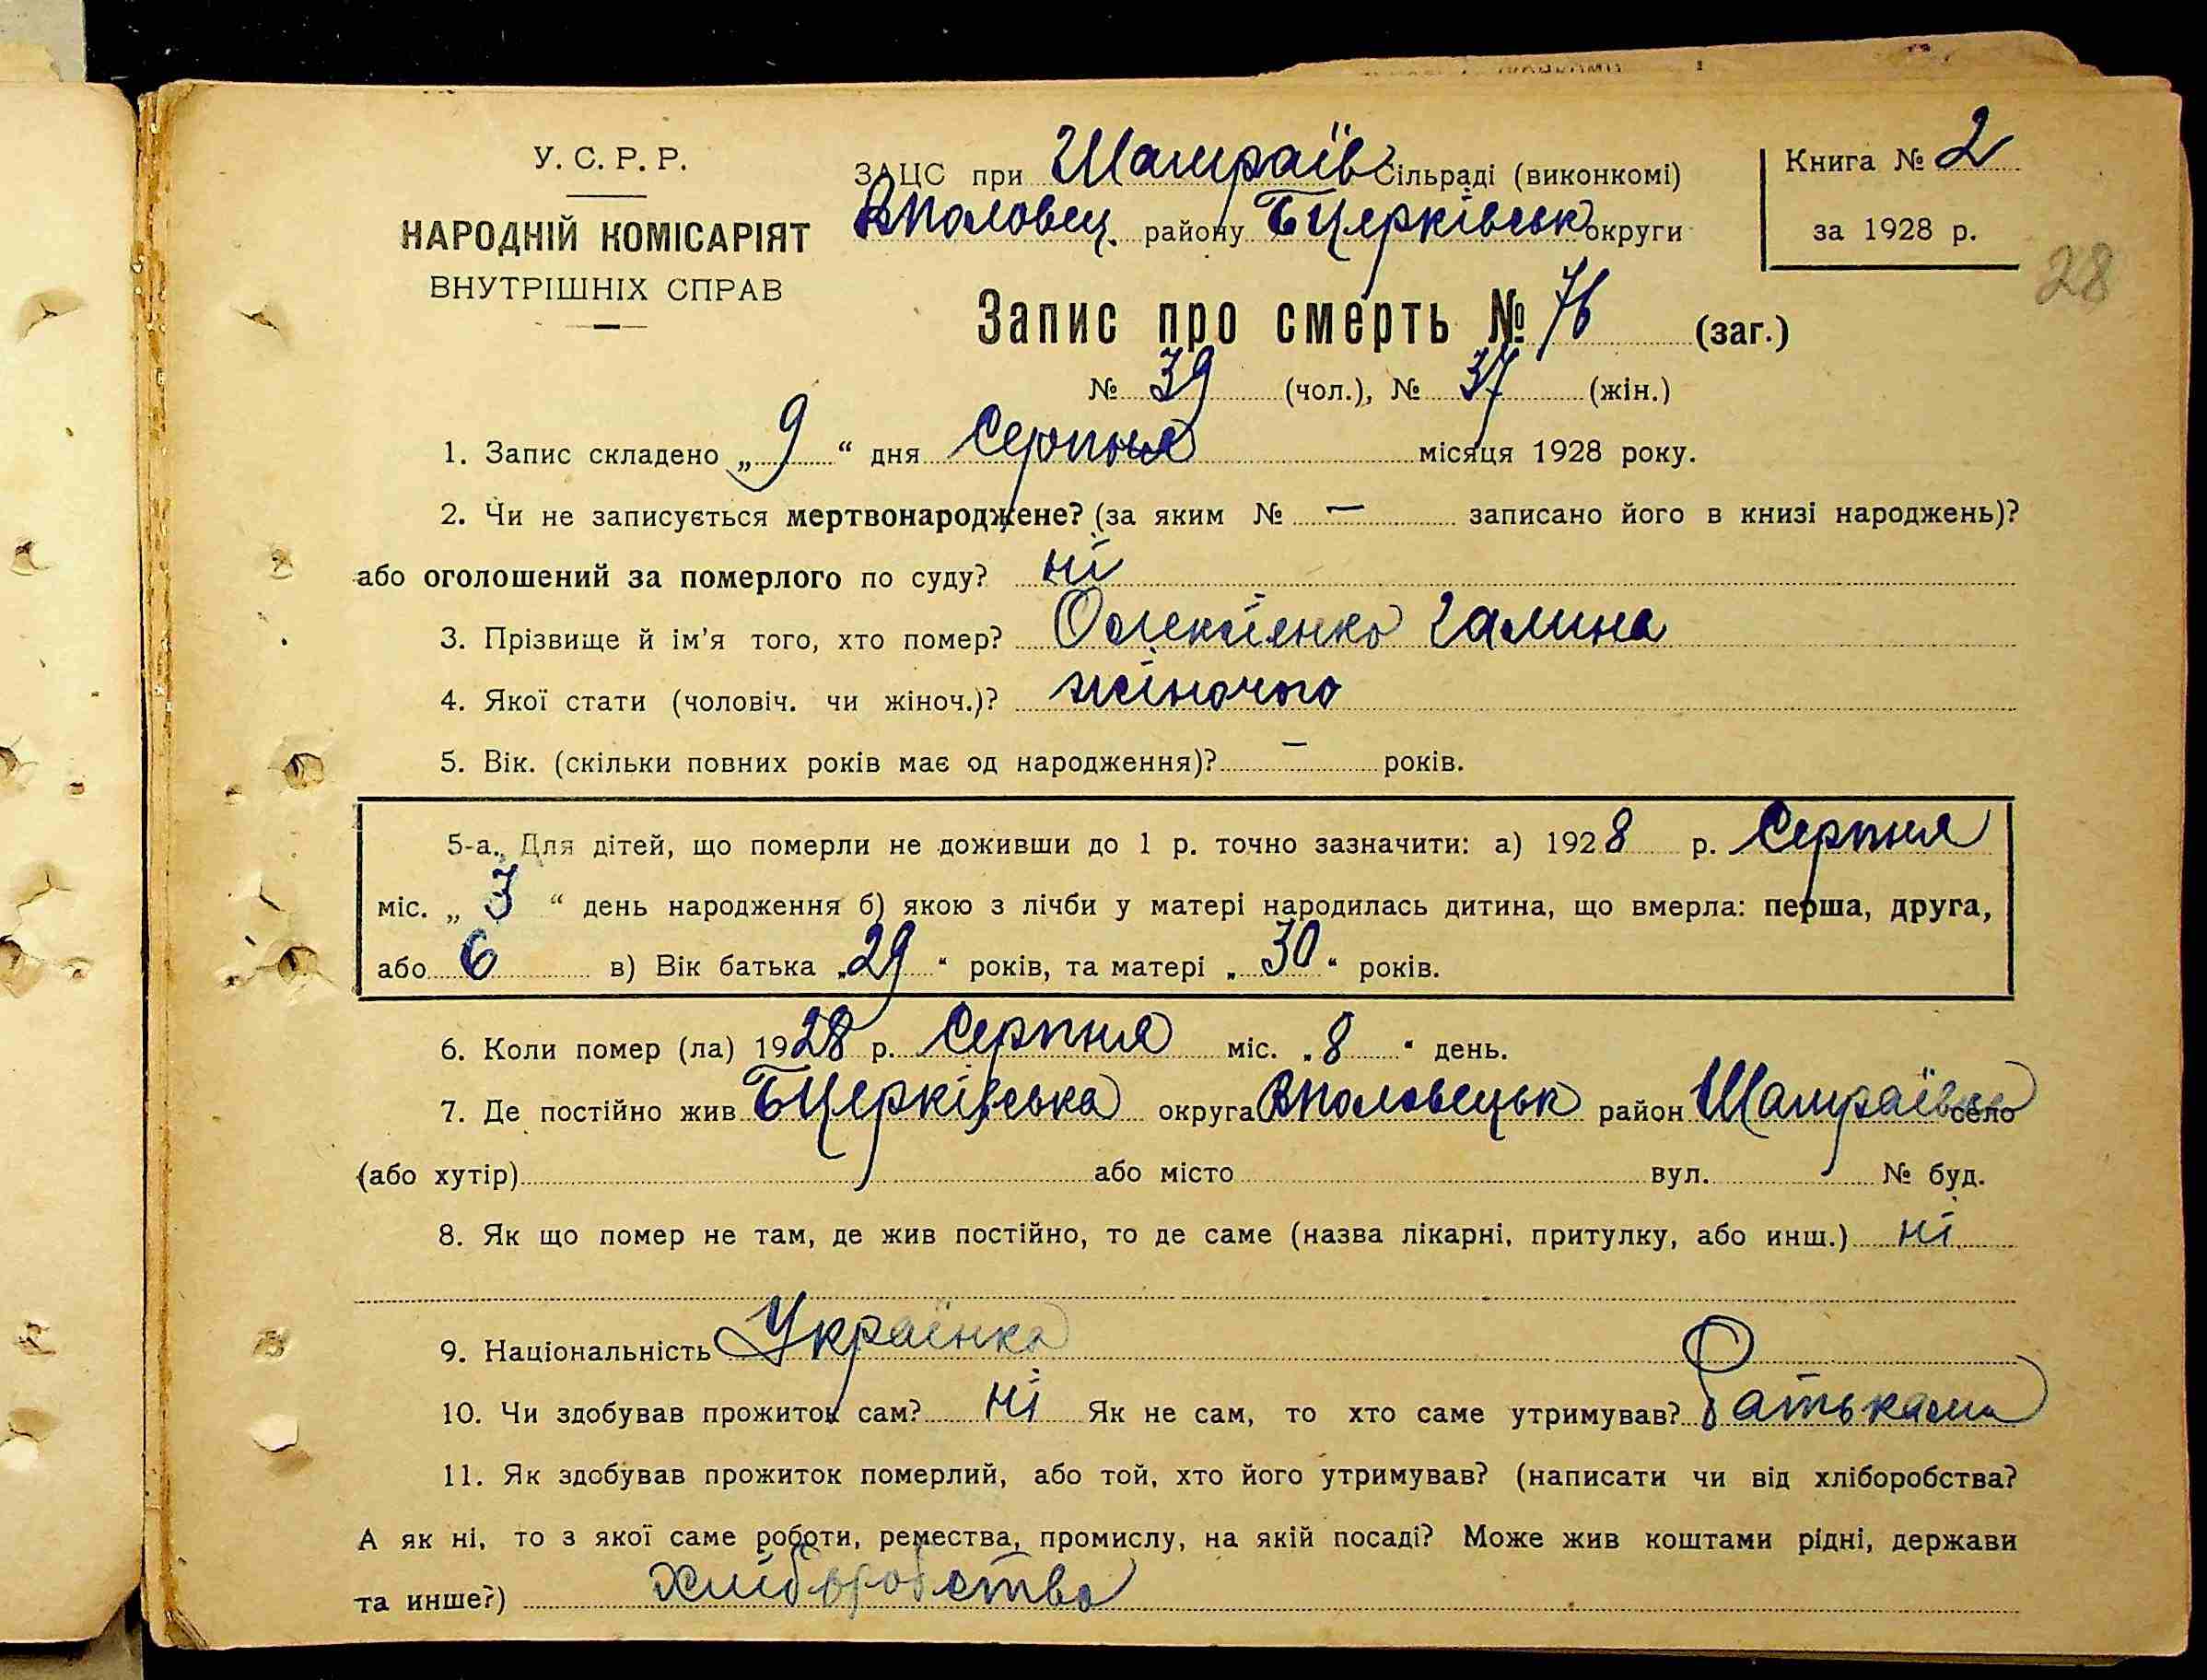 У. С. Р. Р.
НАРОДНІЙ КОМІСАРІЯТ
ВНУТРІШНІХ СПРАВ
ЗАЦС при Шамраїв Сільраді (виконкомі)
ВПоловец. району БЦерківськ округи
Книга № 2
за 1928 р.
28
Запис про смерть № 76 (заг.)
№ 39 (чол.), № 37 (жін.)
1. Запис складено „ 9 “ дня Серпня місяця 1928 року.
2. Чи не записується мертвонароджене? (за яким № — записано його в книзі народжень)?
або оголошений за померлого по суду? ні
3. Прізвище й ім'я того, хто помер? Олексієнко Галина
4. Якої стати (чоловіч. чи жіноч.)? жіночого
5. Вік. (скільки повних років має од народження)? — років.
5-а. Для дітей, що померли не доживши до 1 р. точно зазначити: а) 1928 р. Серпня
міс. „ 3 “ день народження б) якою з лічби у матері народилась дитина, що вмерла: перша, друга,
або 6 в) Вік батька „ 29 “ років, та матері „ 30 “ років.
6. Коли помер (ла) 1928 р. Серпня міс. „ 8 “ день.
7. Де постійно жив БЦерківська округа ВПоловецьк район Шамраївка село
(або хутір) або місто вул. № буд.
8. Як що помер не там, де жив постійно, то де саме (назва лікарні, притулку, або инш.) ні
9. Національність Українка
10. Чи здобував прожиток сам? ні Як не сам, то хто саме утримував? батьками
11. Як здобував прожиток померлий, або той, хто його утримував? (написати чи від хліборобства?
А як ні, то з якої саме роботи, ремества, промислу, на якій посаді? Може жив коштами рідні, держави
та инше?) хліборобство